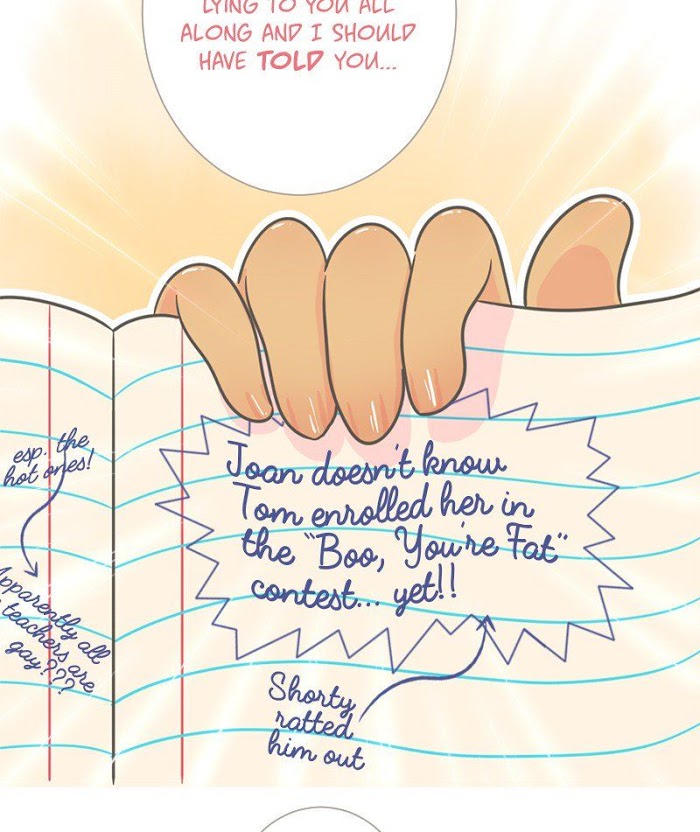 LYING TO YOU ALL
ALONG AND I SHOULD
HAVE TOLD YOU...
esp. the
hot ones!
Apparently all
teachers are
gay???
Joan doesn't know
Tom enrolled her in
the "Boo, You're Fat"
contest... yet!!
Shorty
ratted
him out